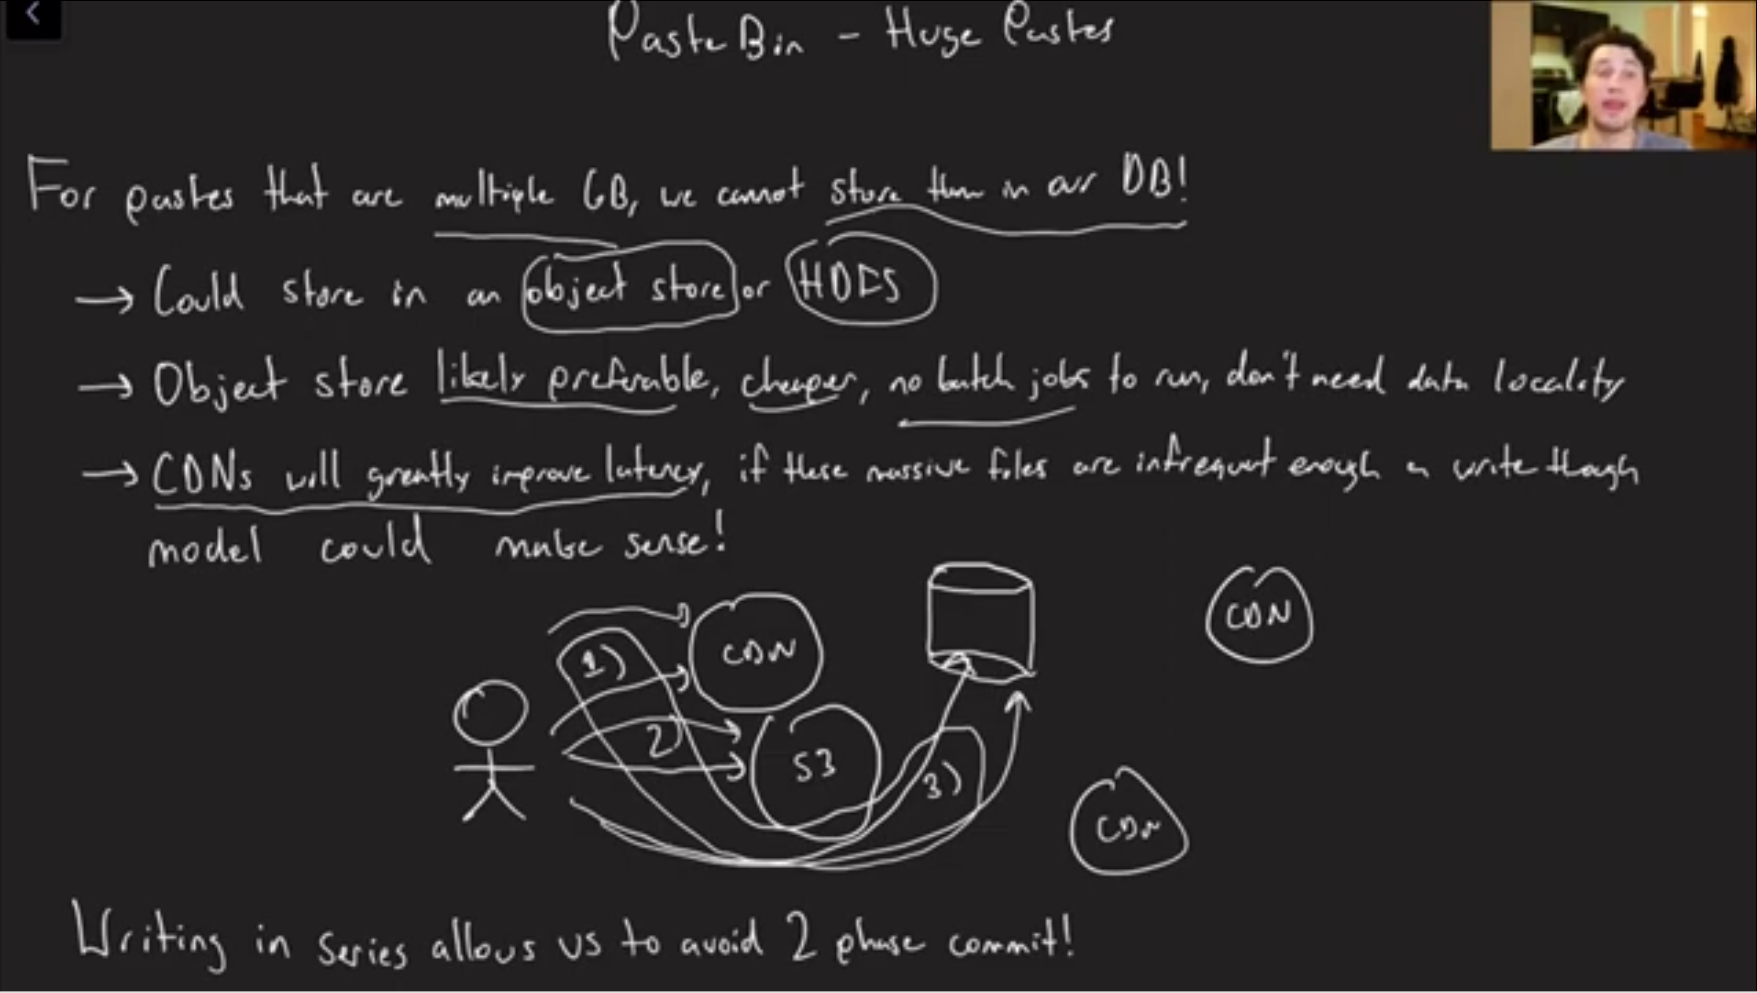 PasteBin - Huge Pastes
For pastes that are multiple GB, we cannot store them in our DB!
→ Could store in an object store or HDFS
→ Object store likely preferable, cheaper, no batch jobs to run, don't need data locality
→ CDNs will greatly improve latency, if these massive files are infrequent enough a write though
model could make sense!
CDN
CDN
1)
2)
S3
3)
CDN
Writing in series allows us to avoid 2 phase commit!